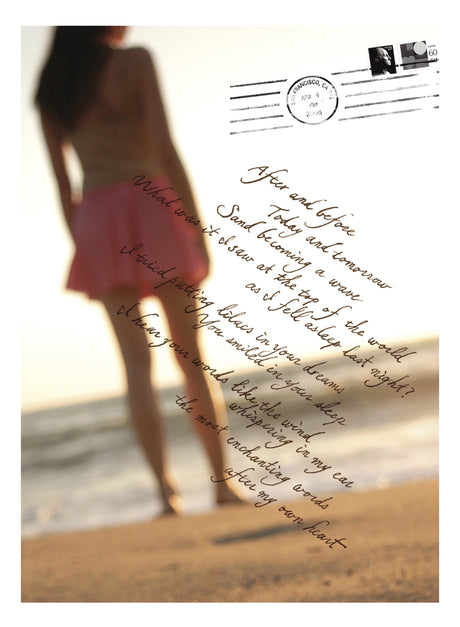 60
SAN FRANCISCO, CA
APR 9
PM
After and before
Today and tomorrow
Sand becoming a wave
What was it I saw at the top of the world
as I fell asleep last night?
I tried putting lilacs in your dreams
You smiled in your sleep
I hear your words like the wind
whispering in my ear
the most enchanting words
after my own heart